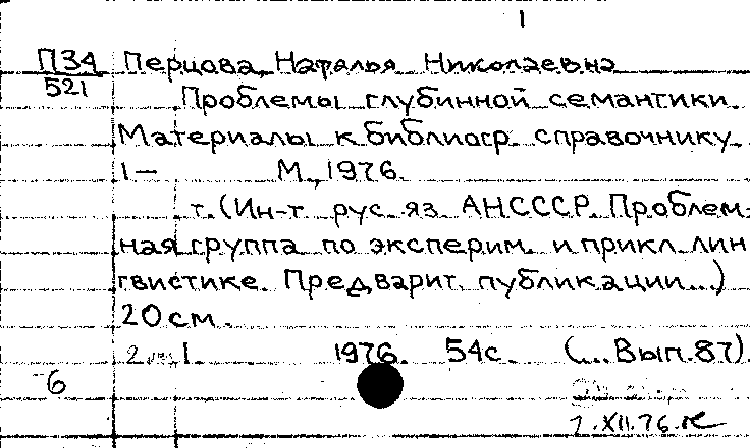 1
П34 Перцова, Наталья Николаевна
521
Проблемы глубинной семантики.
Материалы к библиогр. справочнику
1— М., 1976.
т. (Ин-т рус. яз. АНСССР. Проблем-
ная группа по эксперим. и прикл. лин
гвистике. Предварит. публикации...)
20 см.
2 1. 1976. 54с. (... Вып. 87).
6
7.XII.76.